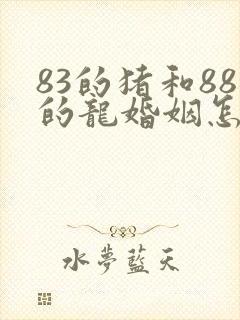 83的猪和88
的龍婚姻怎
水夢藍天